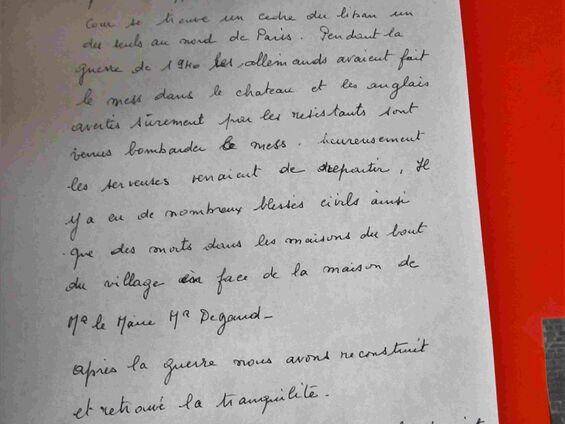 Cour se trouve un cedre du liban un
des seuls au nord de Paris. Pendant la
guerre de 1940 les allemands avaient fait
le mess dans le chateau et les anglais
avertis sûrement par les resistants sont
venus bombarder le mess. heureusement
les serveuses venaient de repartir, Il
y a eu de nombreux blessés civils ainsi
que des morts dans les maisons du bout
du village en face de la maison de
Mr le Maire Mr Degaud-
après la guerre nous avons reconstruit
et retrouvé la tranquilité.